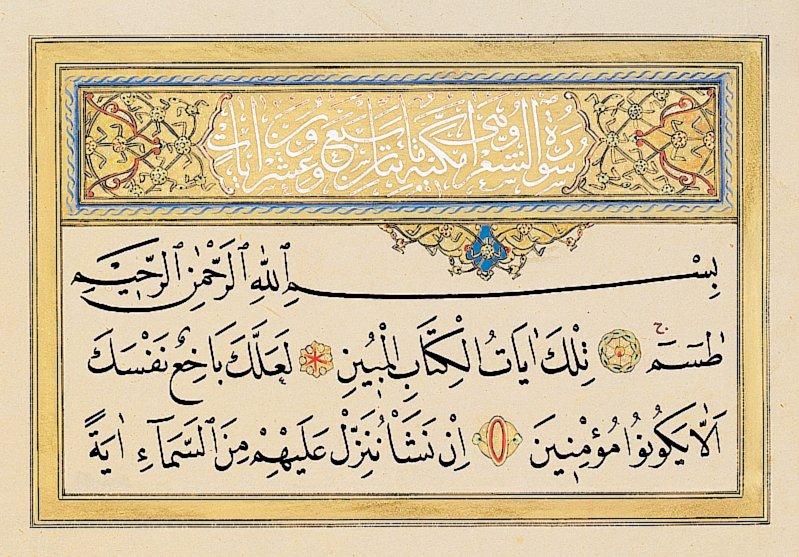 سورة الشعرا مكية وهى مايتان وسبع وعشرون ايات
بِسْمِ ٱللّٰهِ ٱلرَّحْمٰنِ ٱلرَّحٖيمِ
طٰسٓمٓ ۚ تِلْكَ اٰيَاتُ الْكِتَابِ الْمُبٖينِ لَعَلَّكَ بَاخِعٌ نَفْسَكَ
اَلَّا يَكُونُوا مُؤْمِنٖينَ اِنْ نَشَأْ نُنَزِّلْ عَلَيْهِمْ مِنَ السَّمَٓاءِ اٰيَةً